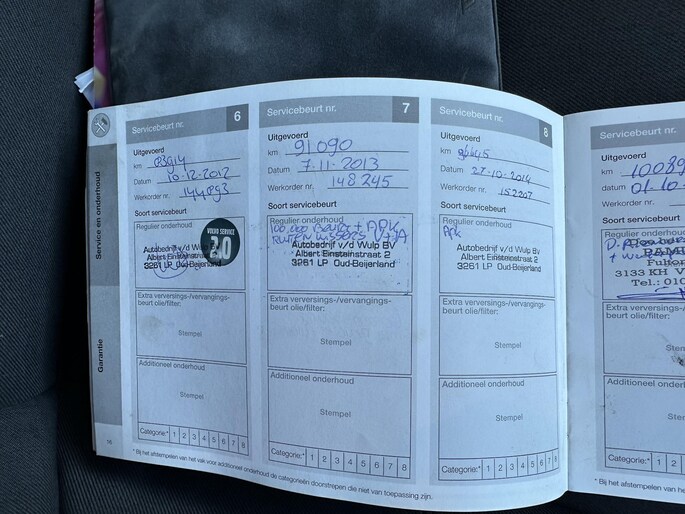 Service en onderhoud
Garantie
Servicebeurt nr. 6
Uitgevoerd
km
Datum 10-12-2012
Werkorder nr.
Soort servicebeurt
Regulier onderhoud
VOLVO SERVICE
2.0
Autobedrijf v/d Wulp BV
Albert Einsteinstraat 2
3261 LP Oud-Beijerland
Extra verversings-/vervangings-
beurt olie/filter:
Stempel
Additioneel onderhoud
Stempel
Categorie:* 1 2 3 4 5 6 7 8
16
Servicebeurt nr. 7
Uitgevoerd
km 91090
Datum 7-11-2013
Werkorder nr. 148245
Soort servicebeurt
Regulier onderhoud
100.000 Beurt + APK
Autobedrijf v/d Wulp BV
Albert Einsteinstraat 2
3261 LP Oud-Beijerland
Extra verversings-/vervangings-
beurt olie/filter:
Stempel
Additioneel onderhoud
Stempel
Categorie:* 1 2 3 4 5 6 7 8
Servicebeurt nr. 8
Uitgevoerd
km
Datum 27-10-2014
Werkorder nr. 152207
Soort servicebeurt
Regulier onderhoud
APK
Autobedrijf v/d Wulp BV
Albert Einsteinstraat 2
3261 LP Oud-Beijerland
Extra verversings-/vervangings-
beurt olie/filter:
Stempel
Additioneel onderhoud
Stempel
Categorie:* 1 2 3 4 5 6 7 8
Servicebeurt nr.
Uitgevoerd
km 10089
Datum 01-10-
Werkorder nr.
Soort servicebeurt
Regulier onderhoud
3133 KH V
Tel.: 010
Extra verversings-/vervan
beurt olie/filter:
Stem
Additioneel onderh
Stem
Categorie:* 1 2
* Bij het afstempelen van het vak voor additioneel onderhoud de categorieën doorstrepen die niet van toepassing zijn.
* Bij het afstempelen va